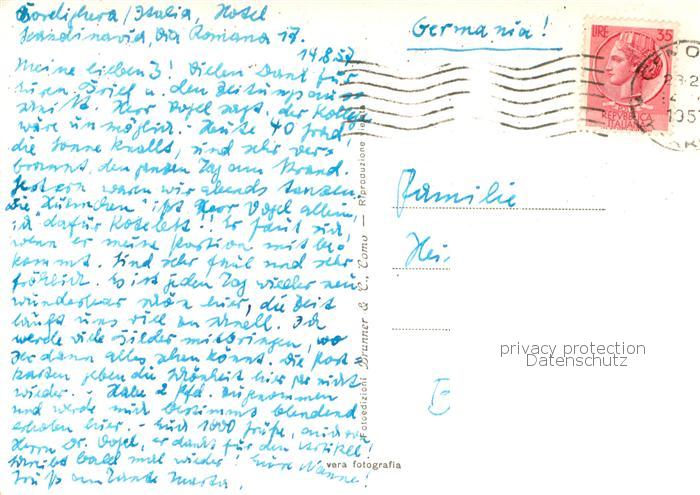 Bordighera/Italia, Hotel
Scandinavia, Via Romana 17.
14.8.57
Meine lieben 3! Vielen Dank für
euren Brief u. den Zeitungsaus-
schnitt. Herr Vogel sagt, der Kollege
wäre unmöglich. Heute 40 Grad,
die Sonne knallt, sind sehr ver-
brannt, den ganzen Tag am Strand.
Gestern waren wir abends tanzen.
Die "Hühnchen" ißt Herr Vogel allein,
ich dafür Koteletts!! Er freut sich,
wenn er meine Portion mit be-
kommt. Sind sehr faul und sehr
fröhlich. Es ist jeden Tag wieder neu
wunderbar schön hier, die Zeit
läuft uns viel zu schnell. Ich
werde viele Bilder mitbringen, wo
Ihr dann alles sehen könnt. Die Post-
karten geben die Schönheit hier gar nicht
wieder. - Habe 2 Pfd. zugenommen
und werde mich bestimmt blendend
erholen hier. - Euch 1000 Grüße, auch von
Herrn Dr. Vogel, er dankt für den Artikel!
Schreibt bald mal wieder! Eure Hanne!
Gruß an Tante Marta.
Germania!
LIRE 35
REPVBBLICA
ITALIANA
195
Familie
Hei
E
Fotoedizioni Brunner & C., Como — Riproduzione
vera fotografia
privacy protection
Datenschutz